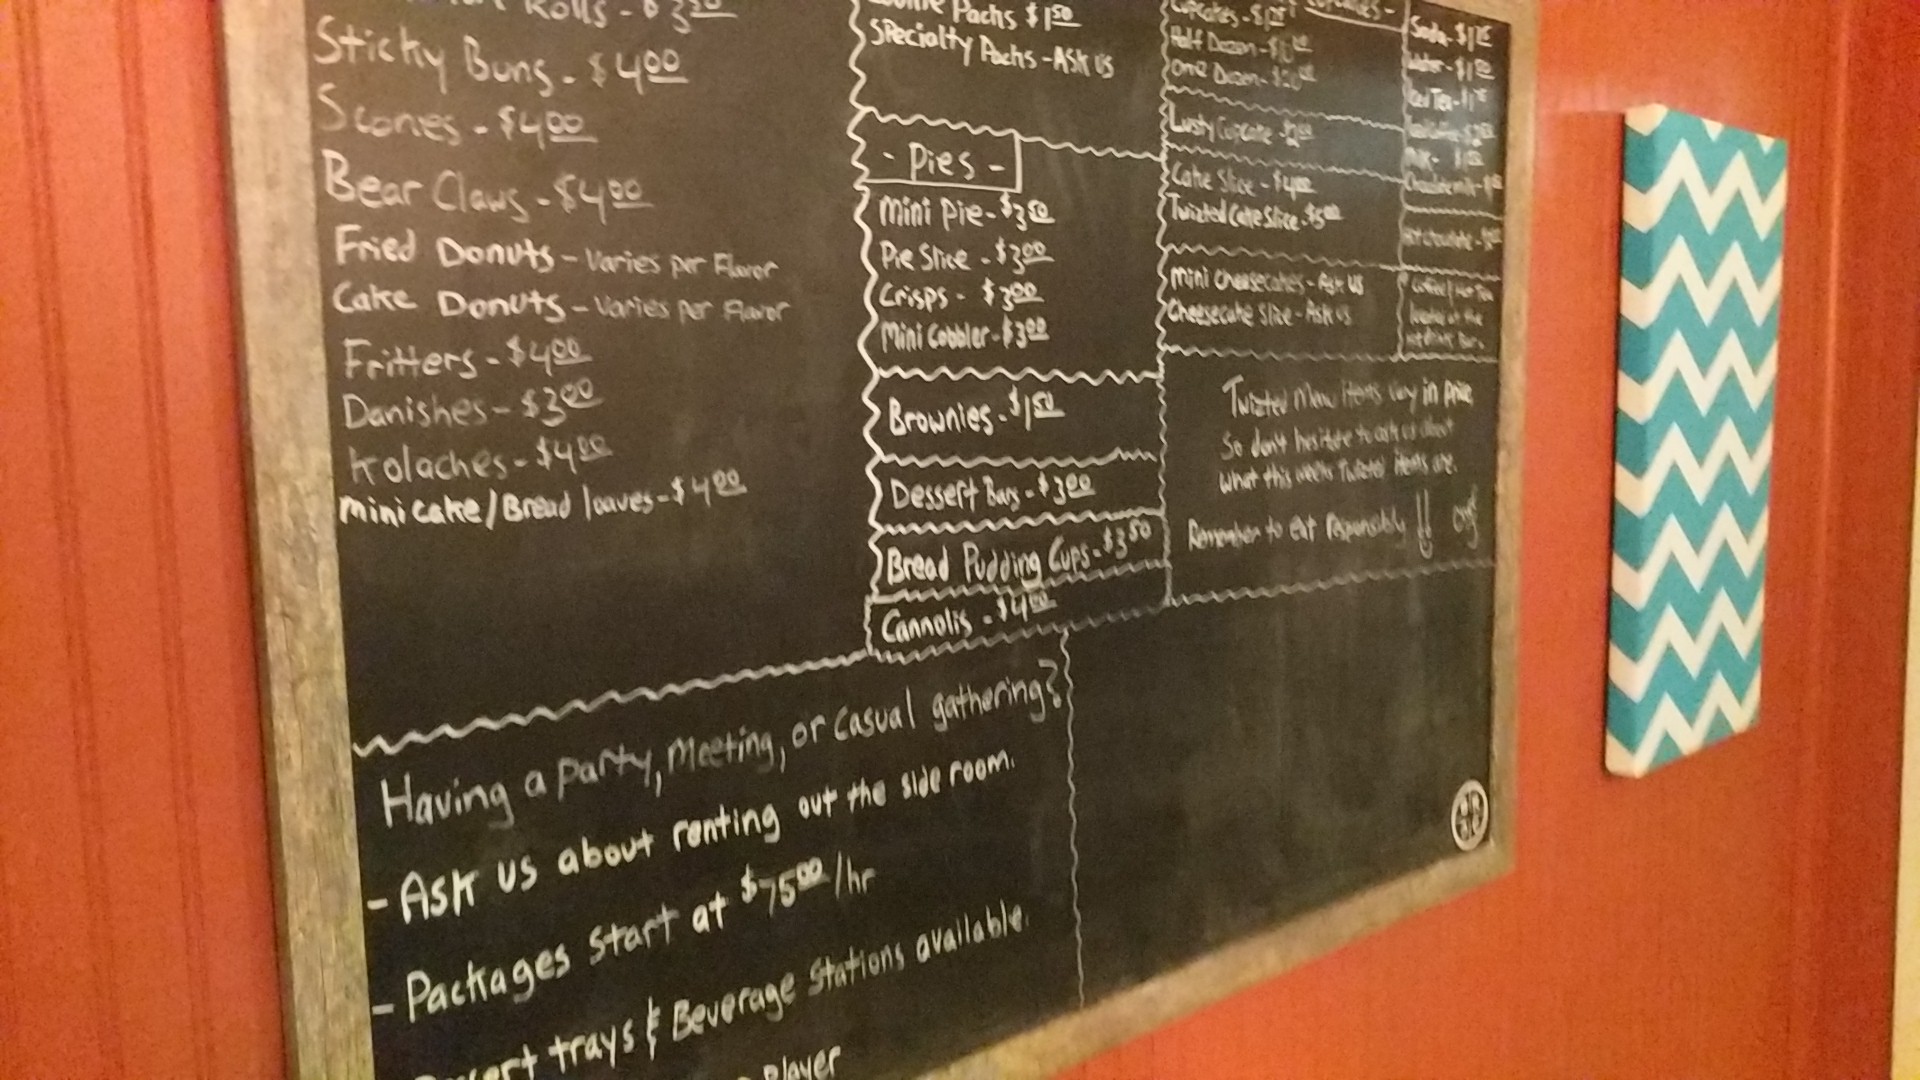 Rolls - $350
Sticky Buns - $400
Scones - $400
Bear Claws - $400
Fried Donuts - Varies per Flavor
Cake Donuts - Varies per Flavor
Fritters - $400
Danishes - $300
Kolaches - $400
mini cake/Bread loaves - $400
Packs $150
Specialty Packs - Ask us
- Pies -
Mini Pie - $350
Pie Slice - $300
Crisps - $300
Mini Cobbler - $300
Brownies - $150
Dessert Bars - $300
Bread Pudding Cups - $350
Cannolis - $400
Cupcakes -
Half Dozen -
One Dozen -
Lusty Cupcake
Cake Slice - $400
Twizted Cake Slice - $500
Mini Cheesecakes - Ask us
Cheesecake Slice - Ask us
Soda -
Water - $100
Iced Tea -
Hot Chocolate -
Twizted Menu items vary in price
So don't hesitate to ask us about
what this weeks Twizted items are.
Remember to eat responsibly !!
Having a party, Meeting, or Casual gathering?
- Ask us about renting out the side room.
- Packages Start at $7500/hr
trays & Beverage Stations available.
Player